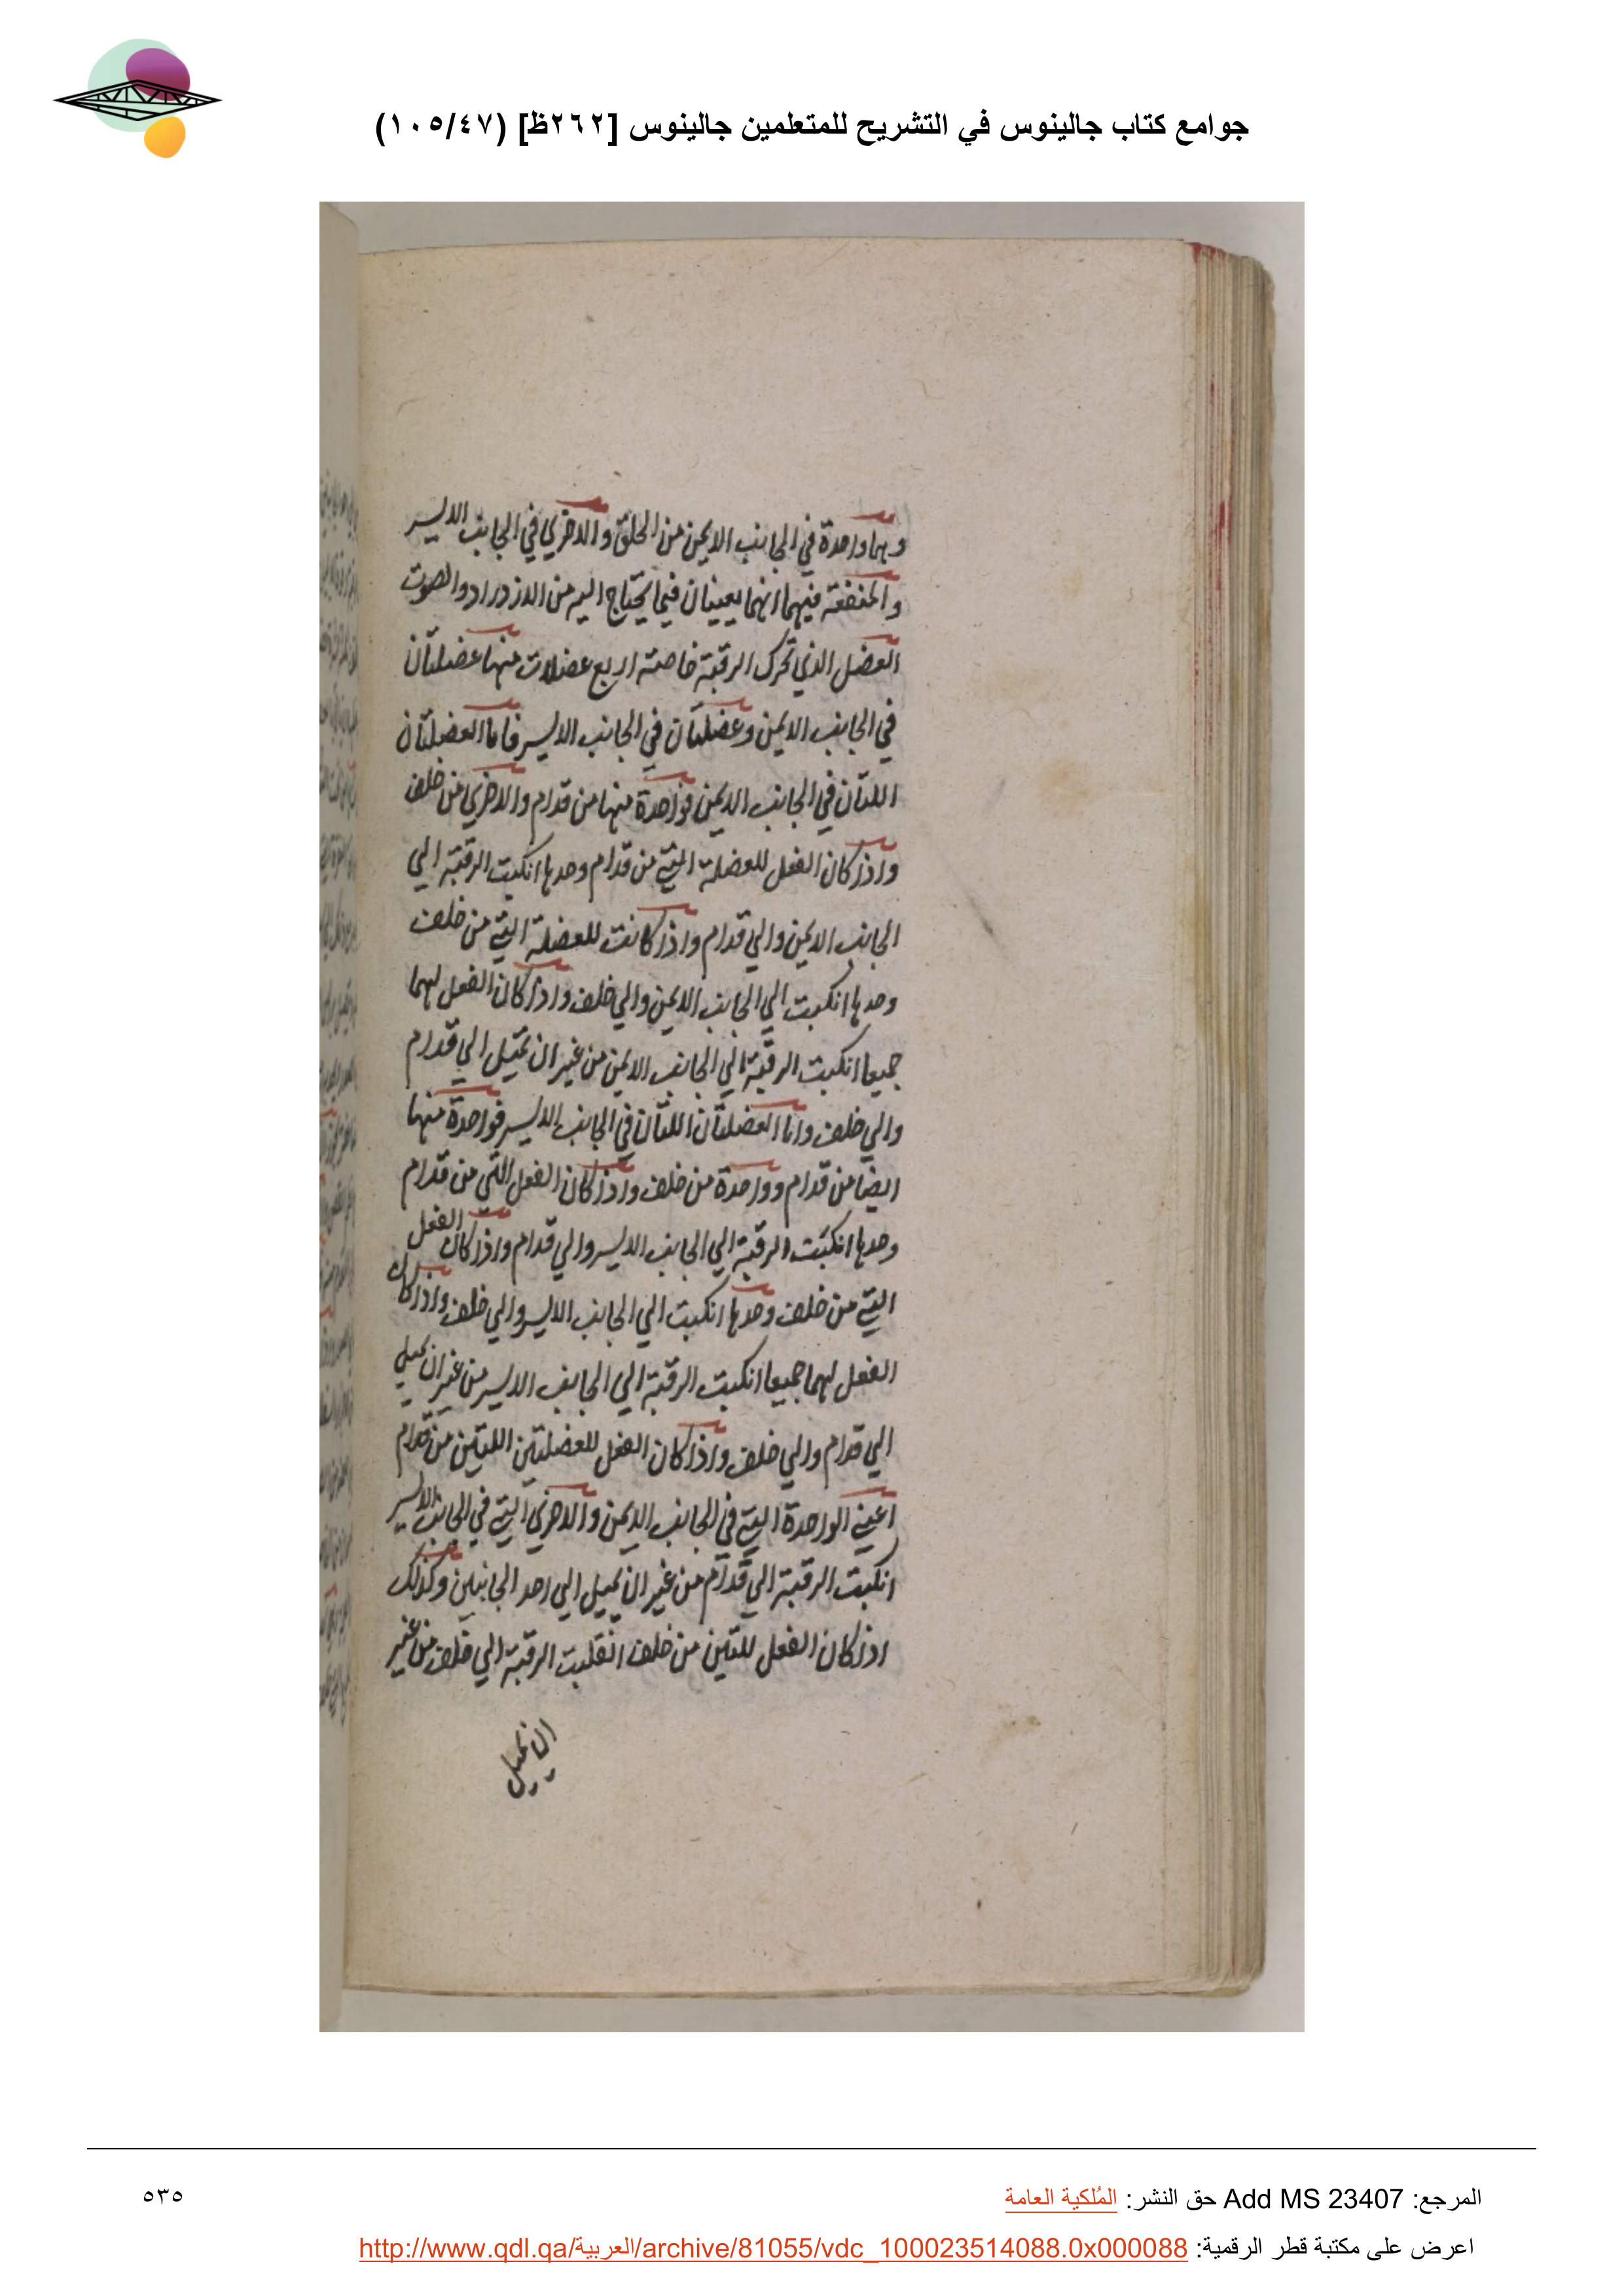 جوامع كتاب جالينوس في التشريح للمتعلمين جالينوس [٢٦٢ظ] (١٠٥/٤٧)
وهما واحدة في الجانب الايمن من الحلق والاخري في الجانب الايسر
والمنفعة فيهما انهما يعينان فيما يحتاج اليه من الازدراد والصوت
العضل الذي تحرك الرقبة خاصته اربع عضلات منها عضلتان
في الجانب الايمن وعضلتان في الجانب الايسر فاما العضلتان
اللتان في الجانب الايمن فواحدة منها من قدام والاخري من خلف
واذا كان الفعل للعضلة التي من قدام وحدها انكبت الرقبة الي
الجانب الايمن والي قدام واذا كانت للعضلة التي من خلف
وحدها انكبت الي الجانب الايمن والي خلف واذا كان الفعل لهما
جميعا انكبت الرقبة الي الجانب الايمن من غير ان تميل الي قدام
والي خلف واما العضلتان اللتان في الجانب الايسر فواحدة منها
ايضا من قدام وواحدة من خلف واذا كان الفعل التي من قدام
وحدها انكبت الرقبة الي الجانب الايسر والي قدام واذا كان الفعل
التي من خلف وحدها انكبت الي الجانب الايسر والي خلف واذا كان
الفعل لهما جميعا انكبت الرقبة الي الجانب الايسر من غير ان تميل
الي قدام والي خلف واذا كان الفعل للعضلتين اللتين من قدام
اعني الواحدة التي في الجانب الايمن والاخري التي في الجانب الايسر
انكبت الرقبة الي قدام من غير ان يميل الي احد الجانبين وكذلك
اذا كان الفعل للتين من خلف انقلبت الرقبة الي خلف من غير
ان تميل
المرجع: Add MS 23407 حق النشر: المُلكية العامة
٥٣٥
اعرض على مكتبة قطر الرقمية: http://www.qdl.qa/العربية/archive/81055/vdc_100023514088.0x000088